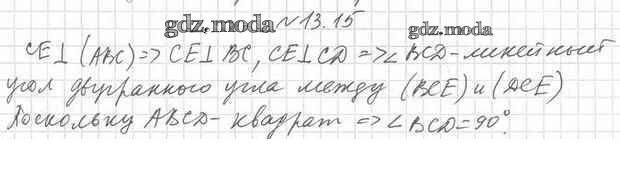 gdz.moda №13.15 gdz.moda
CE⊥(ABC)=>CE⊥BC, CE⊥CD=>∠BCD-линейный
угол двугранного угла между (BCE) и (DCE)
Поскольку ABCD-квадрат =>∠BCD=90°.